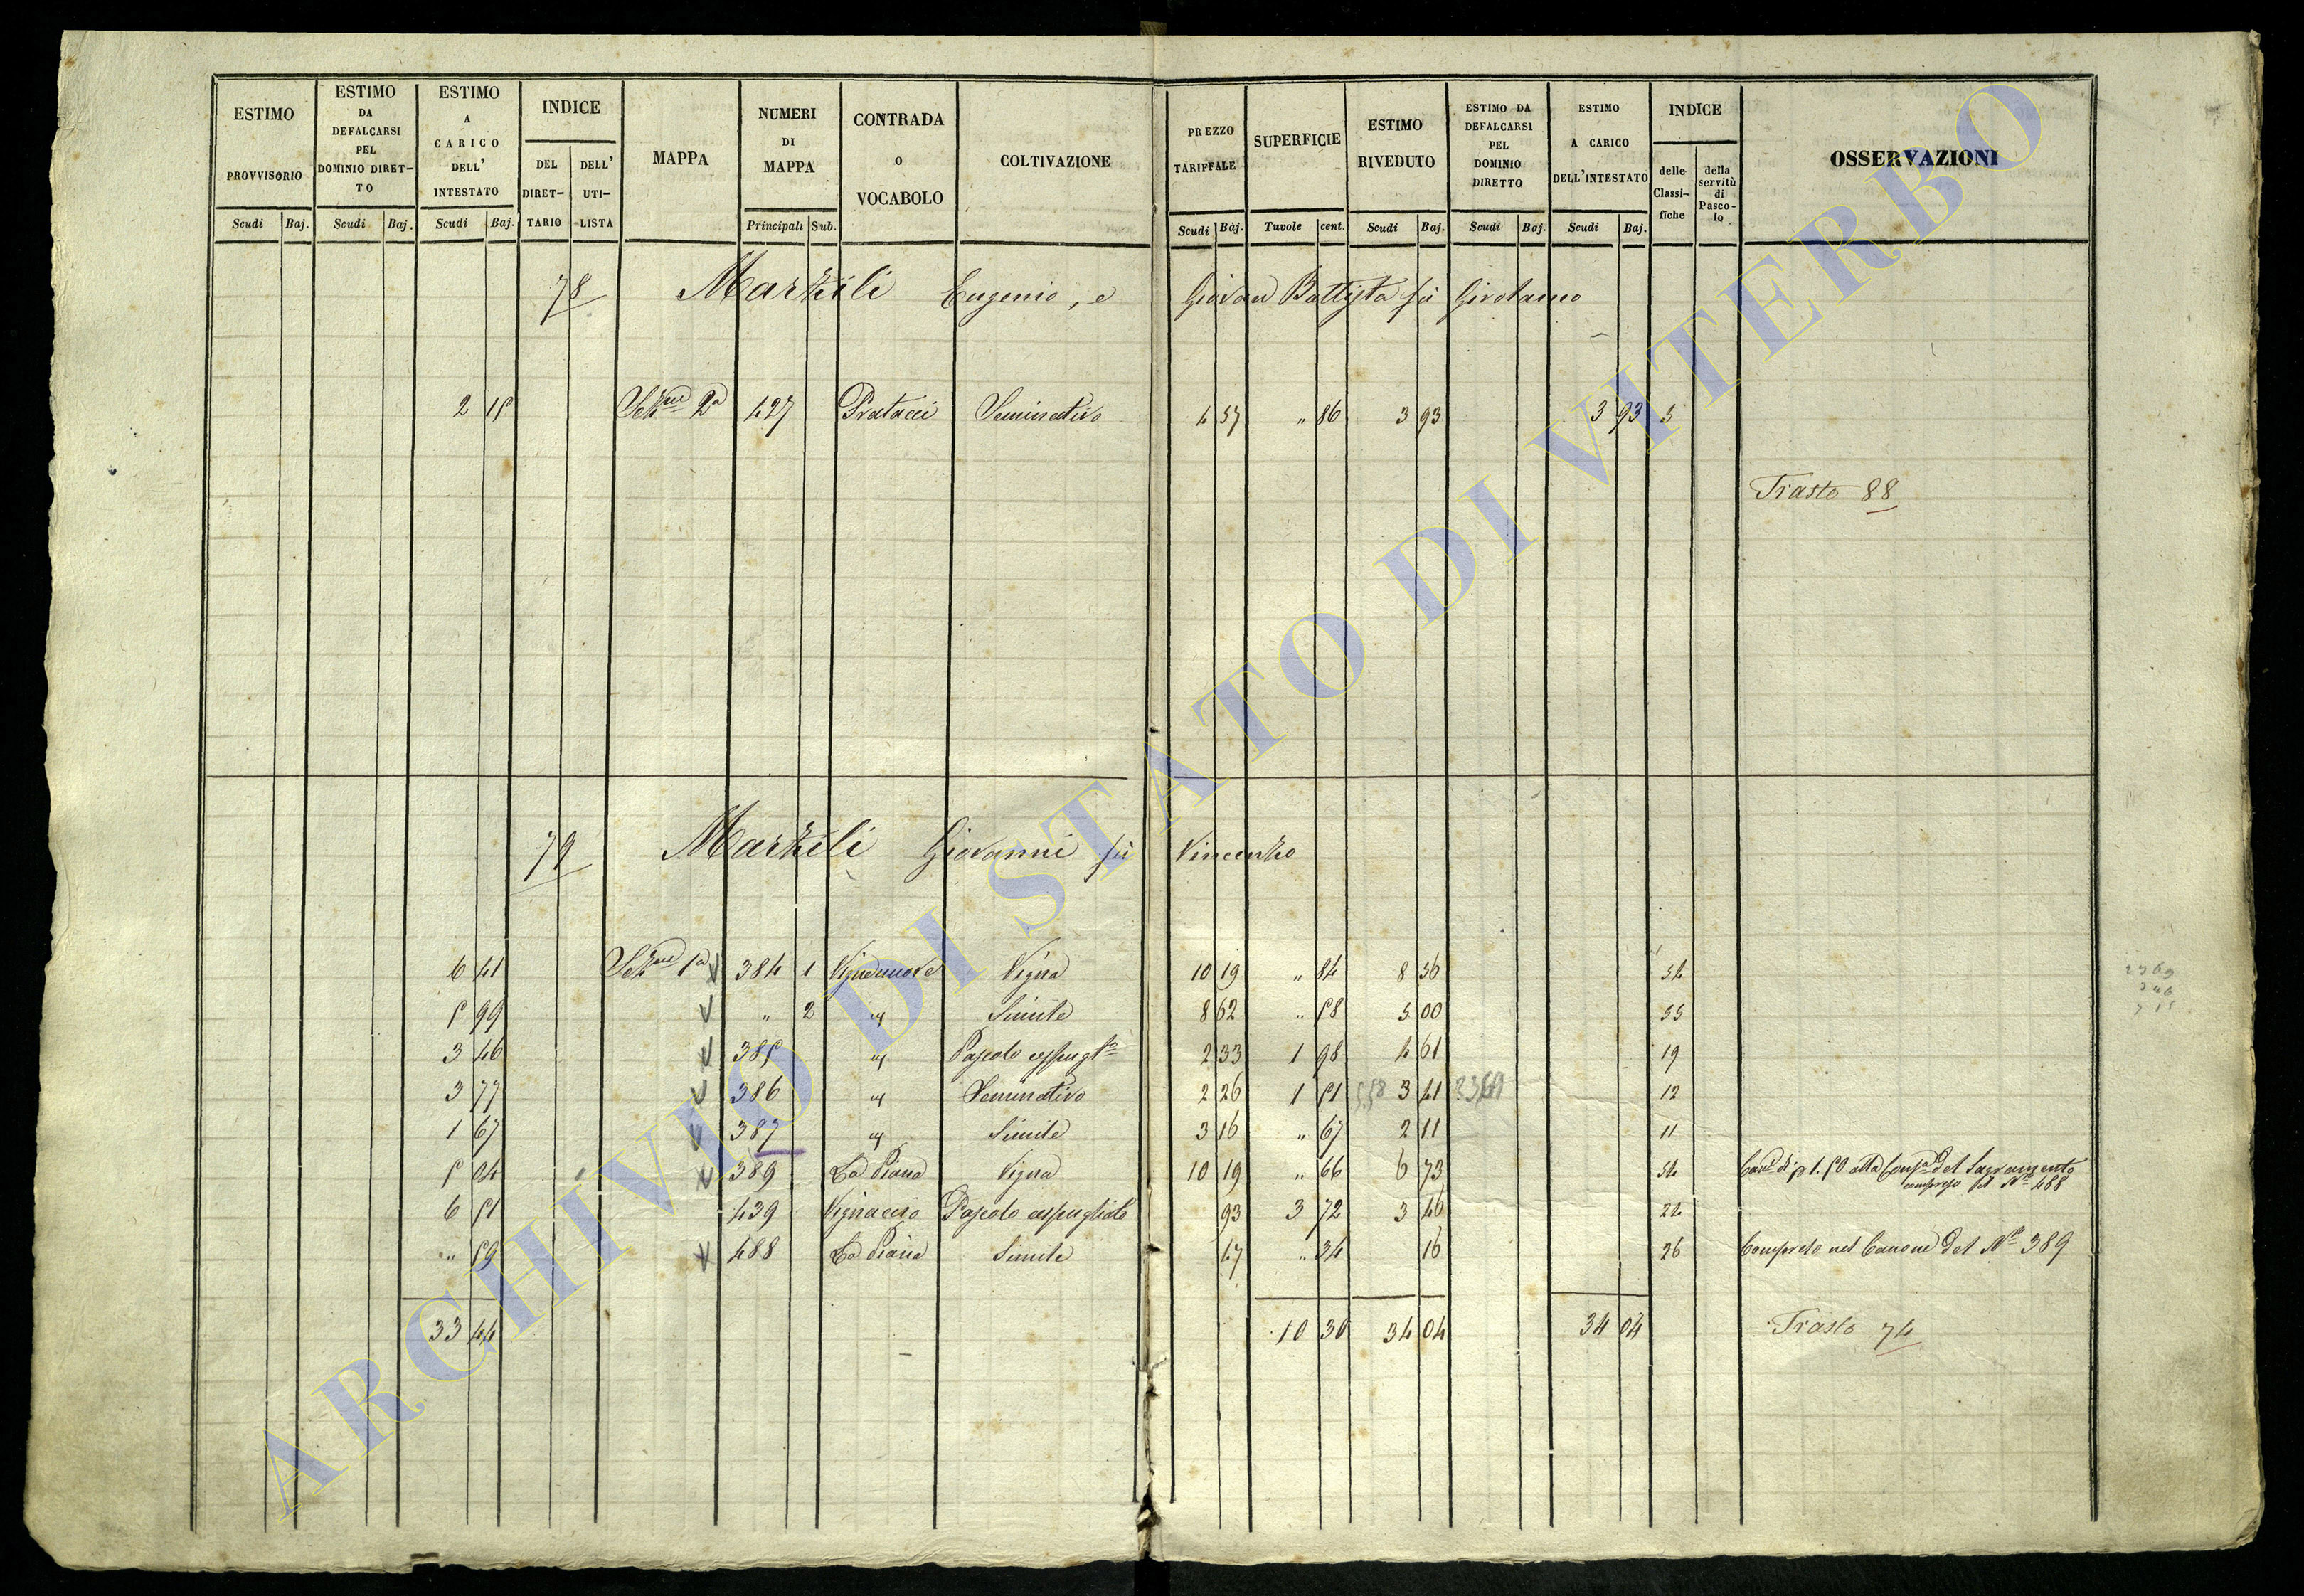 ESTIMO PROVVISORIO
ESTIMO DA DEFALCARSI PEL DOMINIO DIRET-TO
ESTIMO A CARICO DELL' INTESTATO
INDICE
DEL DIRET-TARIO
DELL' UTI-LISTA
MAPPA
NUMERI DI MAPPA
CONTRADA O VOCABOLO
COLTIVAZIONE
PREZZO TARIFFALE
SUPERFICIE
ESTIMO RIVEDUTO
ESTIMO DA DEFALCARSI PEL DOMINIO DIRETTO
ESTIMO A CARICO DELL'INTESTATO
INDICE
delle Classi-fiche
della servitù di Pasco-lo
OSSERVAZIONI
Scudi Baj. Scudi Baj. Scudi Baj. Principali Sub. Scudi Baj. Tavole cent. Scudi Baj. Scudi Baj. Scudi Baj.
78 Marzili Eugenio, e Giovan Battista fù Girolamo
2 15 Sezne 2a 427 Pratacci Seminativo 4 57 " 86 3 93 3 93 5
Trasto 88
79 Marzili Giovanni fù Vincenzo
6 41 Sezne 1a 384 1 Vignanuova Vigna 10 19 " 84 8 56 54
5 99 " 2 " Simile 8 62 " 58 5 00 55
3 46 385 " Pascolo cespugto 2 33 1 98 4 61 19
3 77 386 " Seminativo 2 26 1 51 3 41 2369 12
1 67 387 " Simile 3 16 " 67 2 11 11
5 04 389 La Piana Vigna 10 19 " 66 6 73 54 Cane di 1.50 alla Compa del Sagramento
compreso il No 488
6 51 439 Vignaccio Pascolo cespugliato 93 3 72 3 46 22
" 59 488 La Piana Simile 47 " 34 16 26 Compreso nel Canone del No 389
33 44 10 30 34 04 34 04 Trasto 74
ARCHIVIO DI STATO DI VITERBO